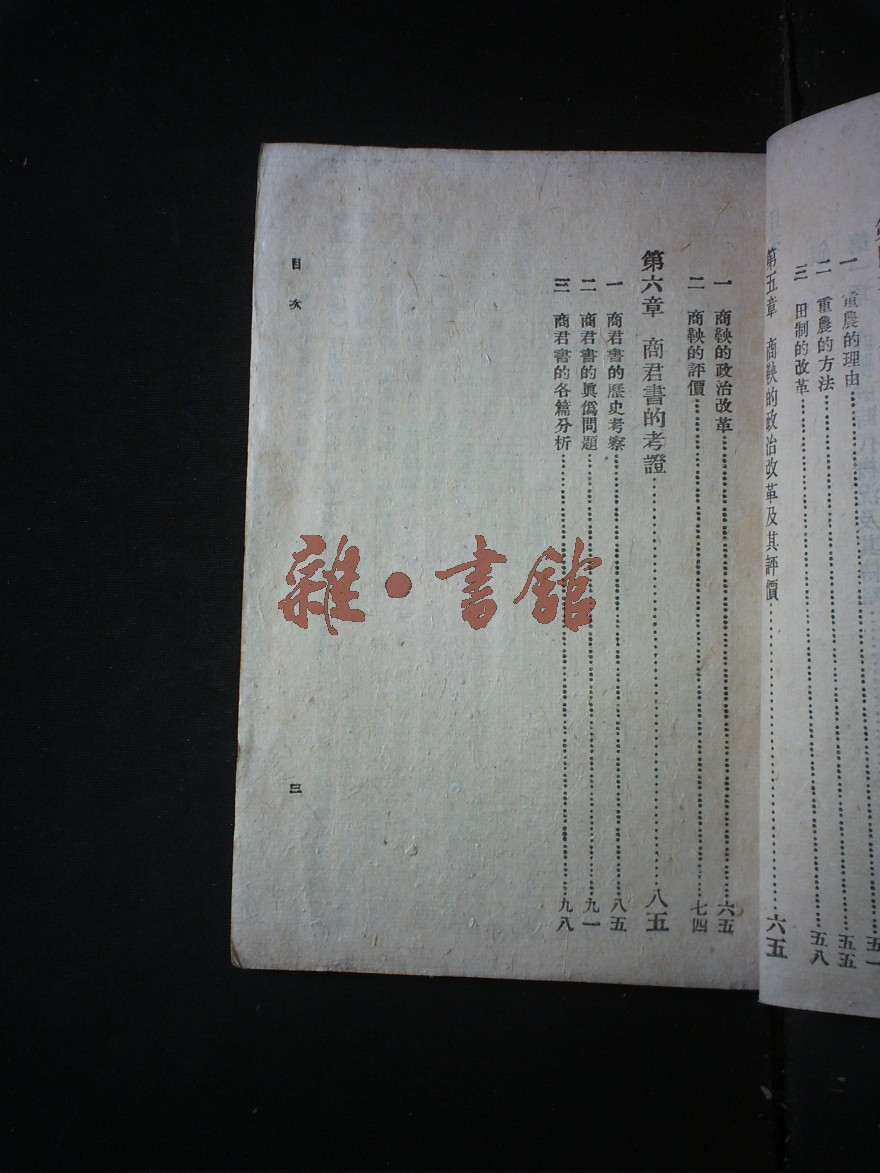 一 重農的理由……五一
二 重農的方法……五五
三 田制的改革……五八
第五章 商鞅的政治改革及其評價……六五
一 商鞅的政治改革……六五
二 商鞅的評價……七四
第六章 商君書的考證……八五
一 商君書的歷史考察……八五
二 商君書的眞僞問題……九一
三 商君書的各篇分析……九八
目次
三
雜·書館